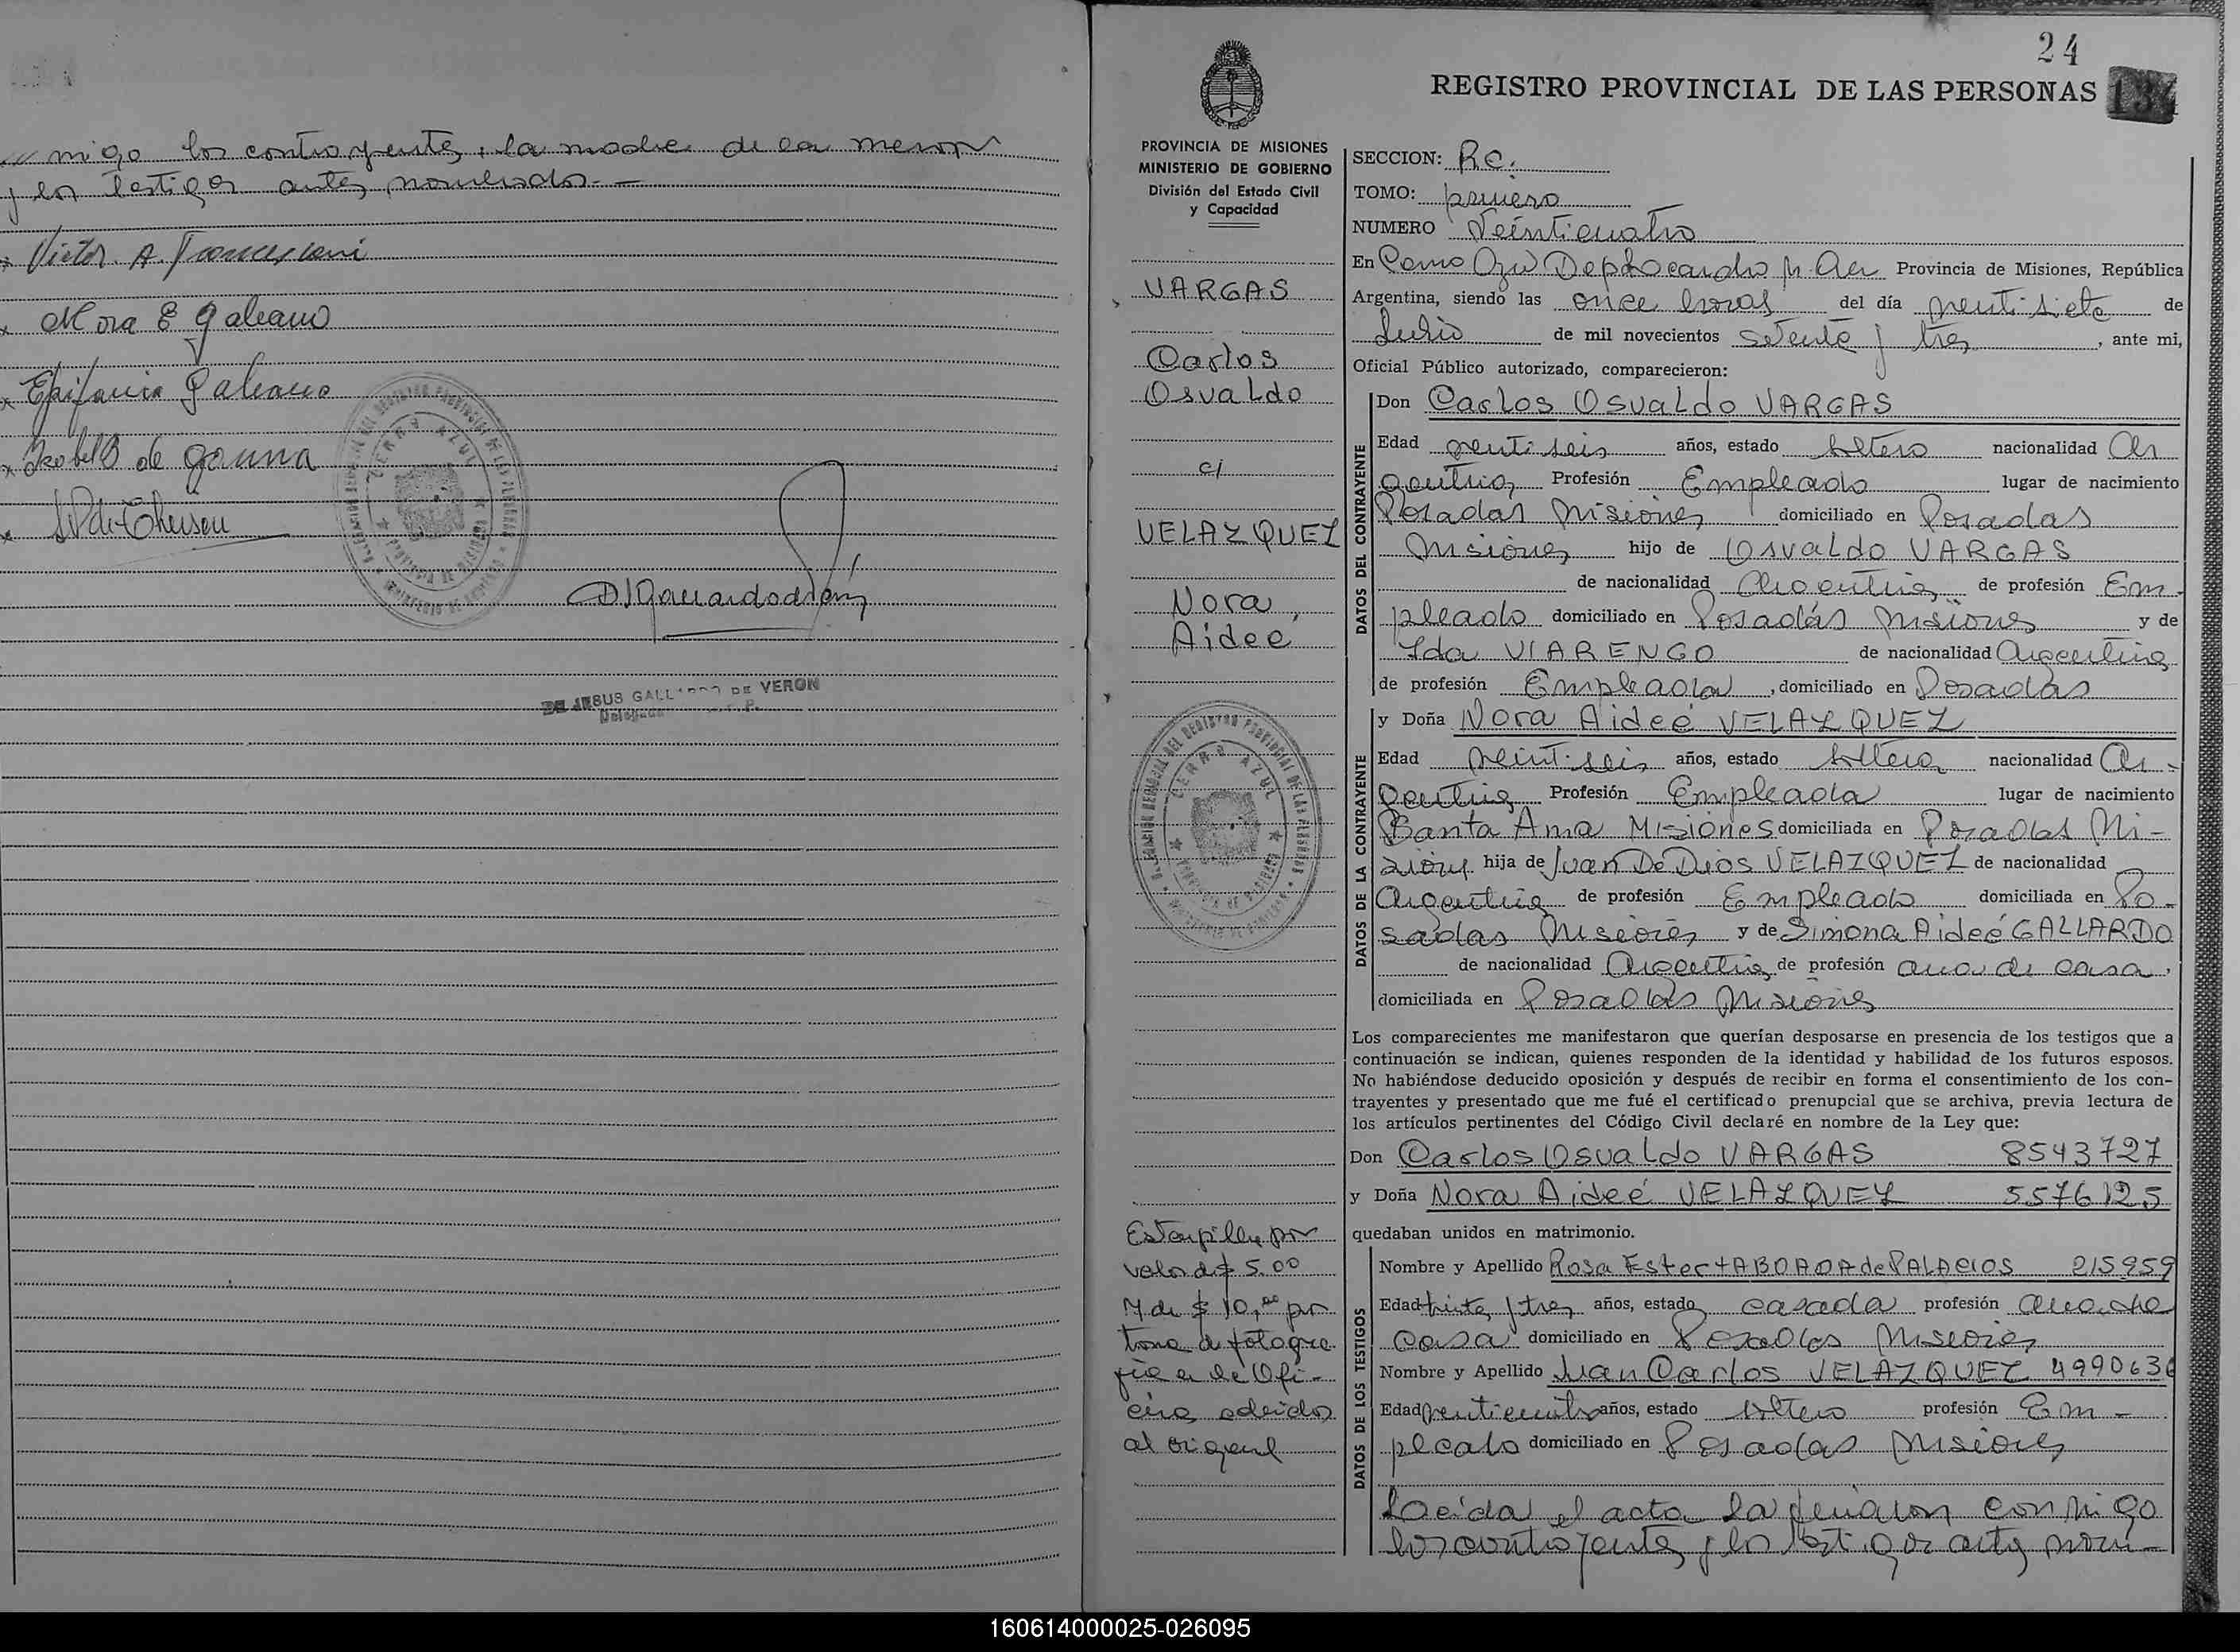 migo los contrayentes, la madre de la menor
y los testigos antes nombrados.-
Victor. A. Francesconi
Nora E Galeano
Epifania Galeano
Isabel B de Gauna
CERRO AZUL
DE JESUS GALLARDO DE VERON
Delegada
24
REGISTRO PROVINCIAL DE LAS PERSONAS
137
PROVINCIA DE MISIONES
MINISTERIO DE GOBIERNO
División del Estado Civil
y Capacidad
VARGAS
Carlos
Osvaldo
c/
VELAZQUEZ
Nora
Aideé
CERRO AZUL
Estampilla por
valor de $ 5.00
y de $ 10,00 por
toma de fotogra
fía en la Ofi-
cina adheridos
al original
SECCION: R.C.
TOMO: primero
NUMERO Veinticuatro
En Cerro Azul Depto Leandro N. Alem Provincia de Misiones, República
Argentina, siendo las once horas del día veintisiete de
Julio de mil novecientos setenta y tres, ante mi,
Oficial Público autorizado, comparecieron:
DATOS DEL CONTRAYENTE
Don Carlos Osvaldo VARGAS
Edad veintiseis años, estado soltero nacionalidad Ar
gentina Profesión Empleado lugar de nacimiento
Posadas Misiones domiciliado en Posadas
Misiones hijo de Osvaldo VARGAS
de nacionalidad Argentina de profesión Em-
pleado domiciliado en Posadas Misiones y de
Ida VIARENGO de nacionalidad Argentina
de profesión Empleada, domiciliado en Posadas
y Doña Nora Aideé VELAZQUEZ
DATOS DE LA CONTRAYENTE
Edad veintiseis años, estado soltera nacionalidad Ar-
gentina Profesión Empleada lugar de nacimiento
Santa Ana Misiones domiciliada en Posadas Mi-
siones hija de Juan De Dios VELAZQUEZ de nacionalidad
Argentina de profesión Empleado domiciliada en Po-
sadas Misiones y de Simona Aideé GALLARDO
de nacionalidad Argentina de profesión ama de casa,
domiciliada en Posadas Misiones
Los comparecientes me manifestaron que querían desposarse en presencia de los testigos que a
continuación se indican, quienes responden de la identidad y habilidad de los futuros esposos.
No habiéndose deducido oposición y después de recibir en forma el consentimiento de los con-
trayentes y presentado que me fué el certificado prenupcial que se archiva, previa lectura de
los artículos pertinentes del Código Civil declaré en nombre de la Ley que:
Don Carlos Osvaldo VARGAS 8543727
y Doña Nora Aideé VELAZQUEZ 5576125
quedaban unidos en matrimonio.
DATOS DE LOS TESTIGOS
Nombre y Apellido Rosa Ester TABOADA de PALACIOS 215959
Edad treinta y tres años, estado casada profesión ama de
casa domiciliado en Posadas Misiones
Nombre y Apellido Juan Carlos VELAZQUEZ 4990636
Edad venticuatro años, estado soltero profesión Em-
pleado domiciliado en Posadas Misiones
Leída el acta la firmaron conmigo
los contrayentes y los testigos antes nom-
160614000025-026095